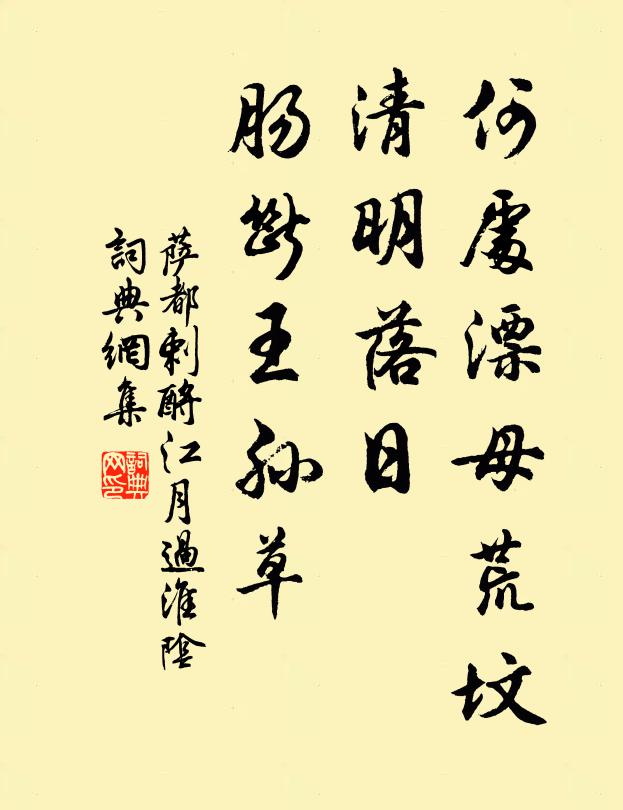 何處漂母荒墳
清明落日
腸斷王孫草
薩都剌酹江月過淮陰
詞典網集
詞典网印